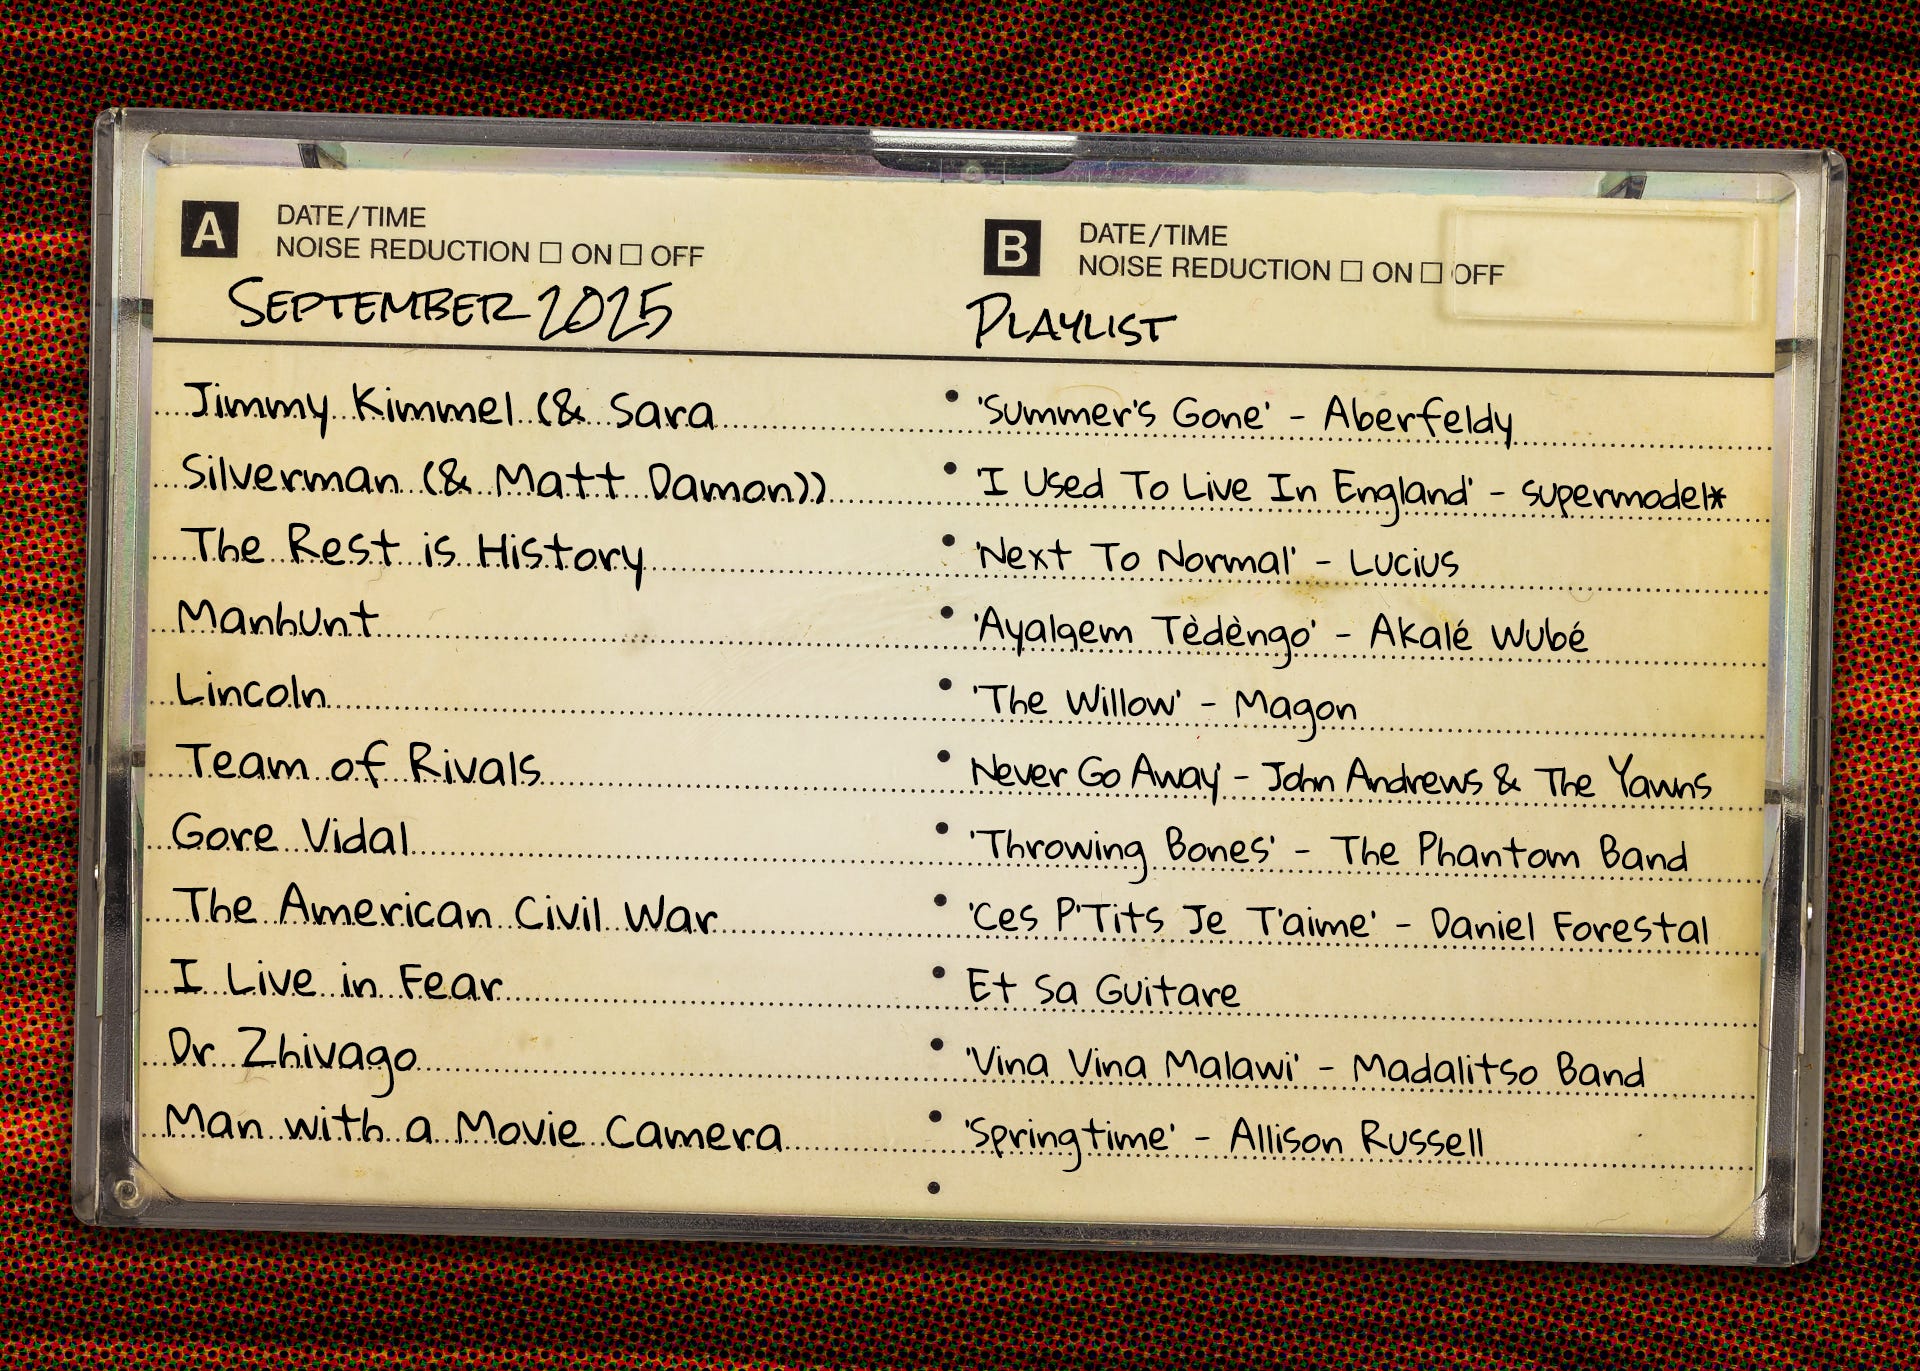 A DATE/TIME
NOISE REDUCTION □ ON □ OFF
SEPTEMBER 2025
Jimmy Kimmel (& Sara
Silverman (& Matt Damon))
The Rest is History
Manhunt
Lincoln
Team of Rivals
Gore Vidal
The American Civil War
I Live in Fear
Dr Zhivago
Man with a Movie Camera
B DATE/TIME
NOISE REDUCTION □ ON □ OFF
PLAYLIST
• 'Summer's Gone' - Aberfeldy
• 'I Used To Live In England' - supermodel*
• 'Next To Normal' - Lucius
• 'Ayalqem Tèdèngo' - Akalé Wubé
• 'The Willow' - Magon
• Never Go Away' - John Andrews & The Yawns
• 'Throwing Bones' - The Phantom Band
• 'Ces P'Tits Je T'aime' - Daniel Forestal
• Et Sa Guitare
• 'Vina Vina Malawi' - Madalitso Band
• 'Springtime' - Allison Russell
•